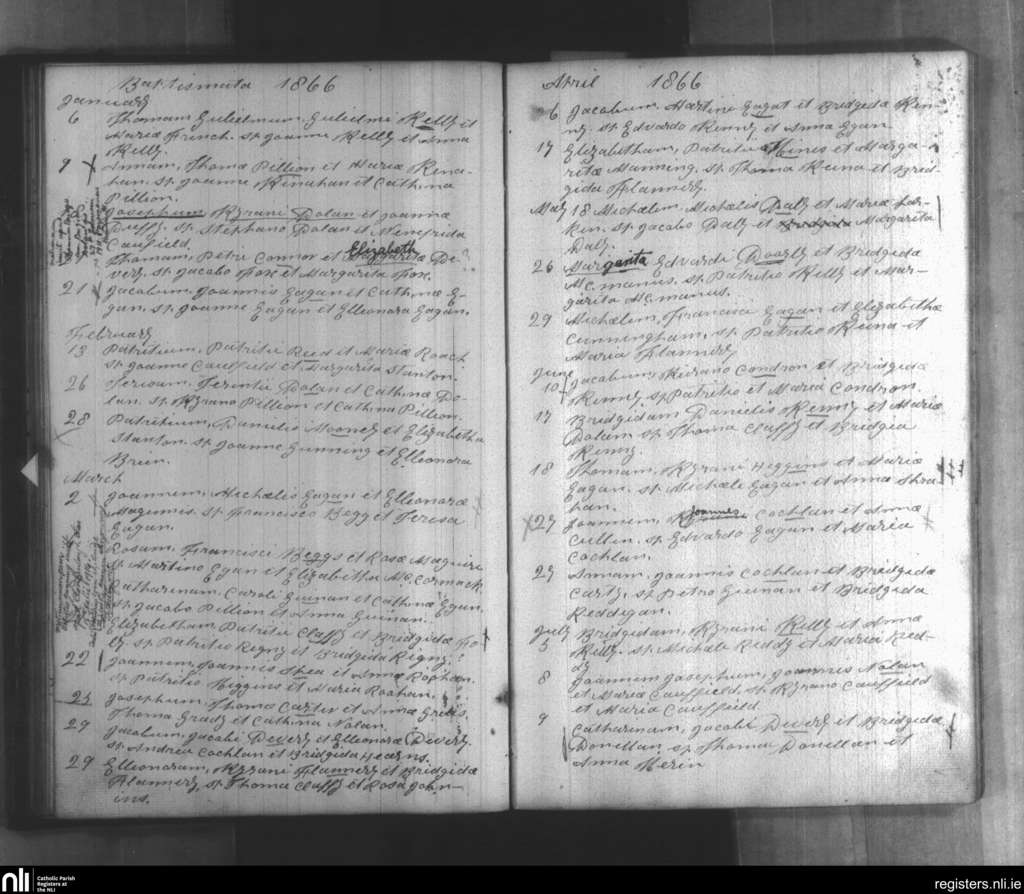 Baptismata 1866
January
6 Thomam Gulielmum, Gulielmi Kelly et
Maria French. Sp. Joanne Kelly et Anna
Kelly.
9 Annam, Thoma Pellion et Maria Kena-
han. Sp. Joanne Kenahan et Cathna
Pillion.
Josephum Kyrani Dolan et Joannæ
Duffy. Sp. Stephano Dolan et Winefrida
Caulfield.
Elizabeth
Thomam, Petri Connor et Margarita De-
very. Sp. Jacobo Fox et Margarita Fox.
21 Jacobum, Joannis Eagan et Cathnæ E-
gan. Sp. Joanne Eagan et Elleonora Eagan.
February
13 Patritium, Patritii Reed et Maria Roach
Sp. Joanne Caulfield et Margarita Stanton.
26 Terentii Dolan et Cathna Do-
lan. Sp. Kyrano Pillion et Cathna Pillion.
28 Patritium, Danielis Mooney et Elizabetha
Stanton. Sp. Joanne Gunning et Elleonora
Brien.
March
2 Joannem, Michælis Eagan et Elleonoræ
Maginnis. Sp. Francisco Begg et Teresa
Eagan.
Rosam, Francisci Beggs et Rosæ Maguire
Sp. Martino Egan et Elizabetha McCormack.
Catharinam, Caroli Guinan et Cathnæ Egan.
Sp. Jacobo Pillion et Anna Guinan.
Elizabetham, Patritii Claffy et Bridgidæ Fo-
ly. Sp. Patritio Rigny et Bridgida Rigny.
22 Joannem, Joannis Shea et Anna Roghan.
Sp. Patritio Higgins et Maria Roghan.
25 Josephum, Thoma Carter et Annæ
Thoma Grady et Cathna Nolan.
29 Jacobum, Jacobi Devery et Elleonoræ Devery.
Sp. Andrea Coghlan et Bridgida Hearns.
29 Elleonoram, Kyrani Flannery et Bridgidæ
Flannery, Sp. Thoma Claffy et Rosa John-
ins.
April 1866
6 Jacobum, Martini Eagat et Bridgida Ken-
ny. Sp. Edvardo Kenny et Anna Egan
17 Elizabetham, Patritii Hines et Marga-
ritæ Manning. Sp. Thoma Keina et Brid-
gida Flannery.
May 18 Michælem, Michælis Daly et Mariæ Lar-
kin. Sp. Jacobo Daly et Margarita
Daly.
26 Margarita Edvardi Doorly et Bridgida
Mc.manus. Sp. Patritio Kelly et Mar-
garita Mc.manus.
29 Michælem, Francisci Eagan et Elizabethæ
Cunningham, Sp. Patritio Keina et
Maria Flannery.
June
10 Jacobum, Kierano Condron et Bridgida
Kenny, Sp. Patritio et Maria Condron.
17 Bridgidam Danielis Kenny et Mariæ
Dolan Sp. Thoma Claffy et Bridgia
Kenny.
18 Thomam, Kyrani Higgins et Mariæ
Eagan. Sp. Michæle Eagan et Anna Shra-
han.
Joannes
27 Joannem, Coghlan et Annæ
Cullen. Sp. Edvardo Eagan et Maria
Coghlan.
27 Annam, Joannis Coghlan et Bridgidæ
Carty, Sp. Petro Guinan et Bridgida
Reddigan.
July
5 Bridgidam, Kyrani Kelly et Annæ
Kelly. Sp. Michæle Reddy et Maria Red-
dy
8 Joannem Josephum, Joannis Nolan
et Mariæ Caulfield, Sp. Kyrano Caulfield
et Maria Caulfield.
9 Catharinam, Jacobi Devery et Bridgidæ
Donellan. Sp. Thoma Donellan et
Anna Herin
nli
Catholic Parish
Registers at
the NLI
registers.nli.ie